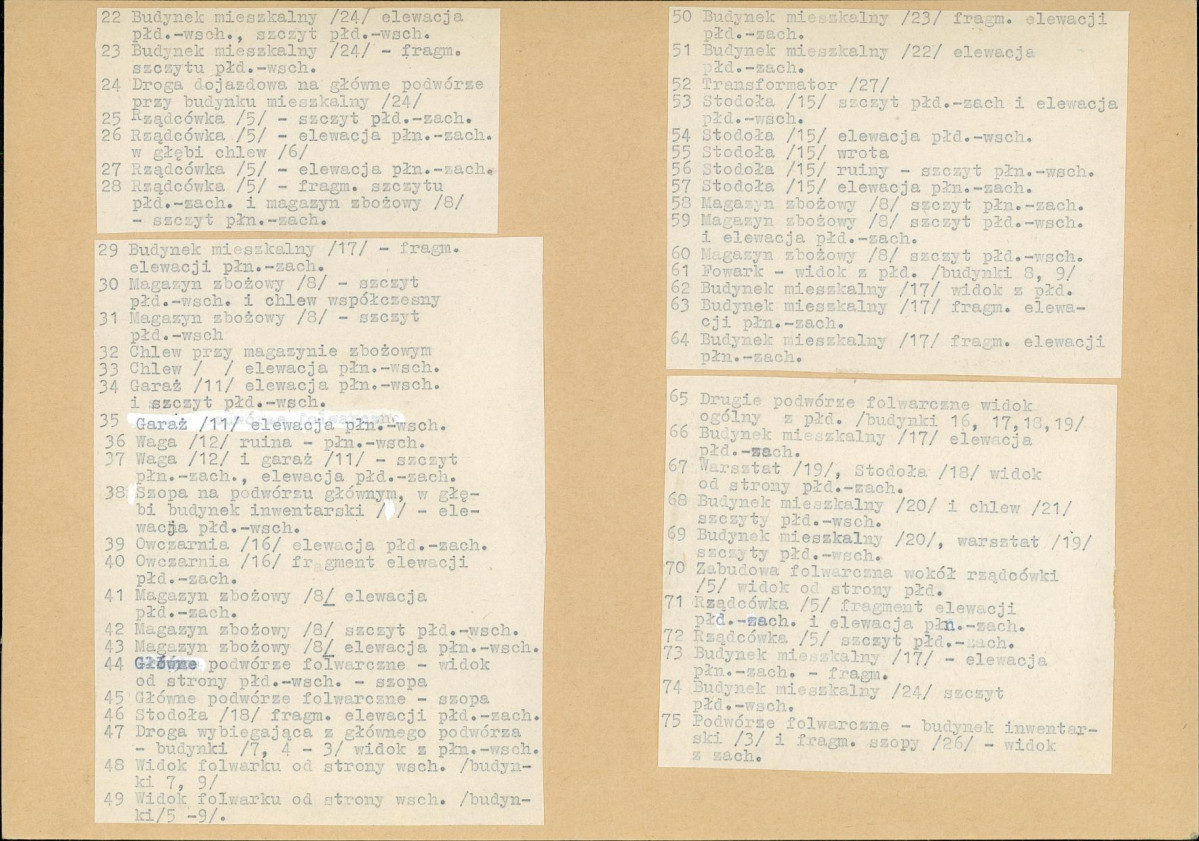 22 Budynek mieszkalny /24/ elewacja
płd.-wsch., szczyt płd.-wsch.
23 Budynek mieszkalny /24/ - fragm.
szczytu płd.-wsch.
24 Droga dojazdowa na główne podwórze
przy budynku mieszkalny /24/
25 Rządcówka /5/ - szczyt płd.-zach.
26 Rządcówka /5/ - elewacja płn.-zach.
w głębi chlew /6/
27 Rządcówka /5/ - elewacja płn.-zach.
28 Rządcówka /5/ - fragm. szczytu
płd.-zach. i magazyn zbożowy /8/
- szczyt płn.-zach.
29 Budynek mieszkalny /17/ - fragm.
elewacji płn.-zach.
30 Magazyn zbożowy /8/ - szczyt
płd.-wsch. i chlew współczesny
31 Magazyn zbożowy /8/ - szczyt
płd.-wsch
32 Chlew przy magazynie zbożowym
33 Chlew /  / elewacja płn.-wsch.
34 Garaż /11/ elewacja płn.-wsch.
i szczyt płd.-wsch.
35 Garaż /11/ elewacja płn.-wsch.
36 Waga /12/ ruina - płn.-wsch.
37 Waga /12/ i garaż /11/ - szczyt
płn.-zach., elewacja płd.-zach.
38 Szopa na podwórzu głównym, w głę-
bi budynek inwentarski / / - ele-
wacja płd.-wsch.
39 Owczarnia /16/ elewacja płd.-zach.
40 Owczarnia /16/ fragment elewacji
płd.-zach.
41 Magazyn zbożowy /8/ elewacja
płd.-zach.
42 Magazyn zbożowy /8/ szczyt płd.-wsch.
43 Magazyn zbożowy /8/ elewacja płn.-wsch.
44 Główne podwórze folwarczne - widok
od strony płd.-wsch. - szopa
45 Główne podwórze folwarczne - szopa
46 Stodoła /18/ fragm. elewacji płd.-zach.
47 Droga wybiegająca z głównego podwórza
- budynki /7, 4 - 3/ widok z płn.-wsch.
48 Widok folwarku od strony wsch. /budyn-
ki 7, 9/
49 Widok folwarku od strony wsch. /budyn-
ki/5 -9/.
50 Budynek mieszkalny /23/ fragm. elewacji
płd.-zach.
51 Budynek mieszkalny /22/ elewacja
płd.-zach.
52 Transformator /27/
53 Stodoła /15/ szczyt płd.-zach i elewacja
płd.-wsch.
54 Stodoła /15/ elewacja płd.-wsch.
55 Stodoła /15/ wrota
56 Stodoła /15/ ruiny - szczyt płn.-wsch.
57 Stodoła /15/ elewacja płn.-zach.
58 Magazyn zbożowy /8/ szczyt płn.-zach.
59 Magazyn zbożowy /8/ szczyt płd.-wsch.
i elewacja płd.-zach.
60 Magazyn zbożowy /8/ szczyt płd.-wsch.
61 Fowark - widok z płd. /budynki 8, 9/
62 Budynek mieszkalny /17/ widok z płd.
63 Budynek mieszkalny /17/ fragm. elewa-
cji płn.-zach.
64 Budynek mieszkalny /17/ fragm. elewacji
płn.-zach.
65 Drugie podwórze folwarczne widok
ogólny z płd. /budynki 16, 17,18,19/
66 Budynek mieszkalny /17/ elewacja
płd.-zach.
67 Warsztat /19/, Stodoła /18/ widok
od strony płd.-zach.
68 Budynek mieszkalny /20/ i chlew /21/
szczyty płd.-wsch.
69 Budynek mieszkalny /20/, warsztat /19/
szczyty płd.-wsch.
70 Zabudowa folwarczna wokół rządcówki
/5/ widok od strony płd.
71 Rządcówka /5/ fragment elewacji
płd.-zach. i elewacja płn.-zach.
72 Rządcówka /5/ szczyt płd.-zach.
73 Budynek mieszkalny /17/ - elewacja
płn.-zach. - fragm.
74 Budynek mieszkalny /24/ szczyt
płd.-wsch.
75 Podwórze folwarczne - budynek inwentar-
ski /3/ i fragm. szopy /26/ - widok
z zach.